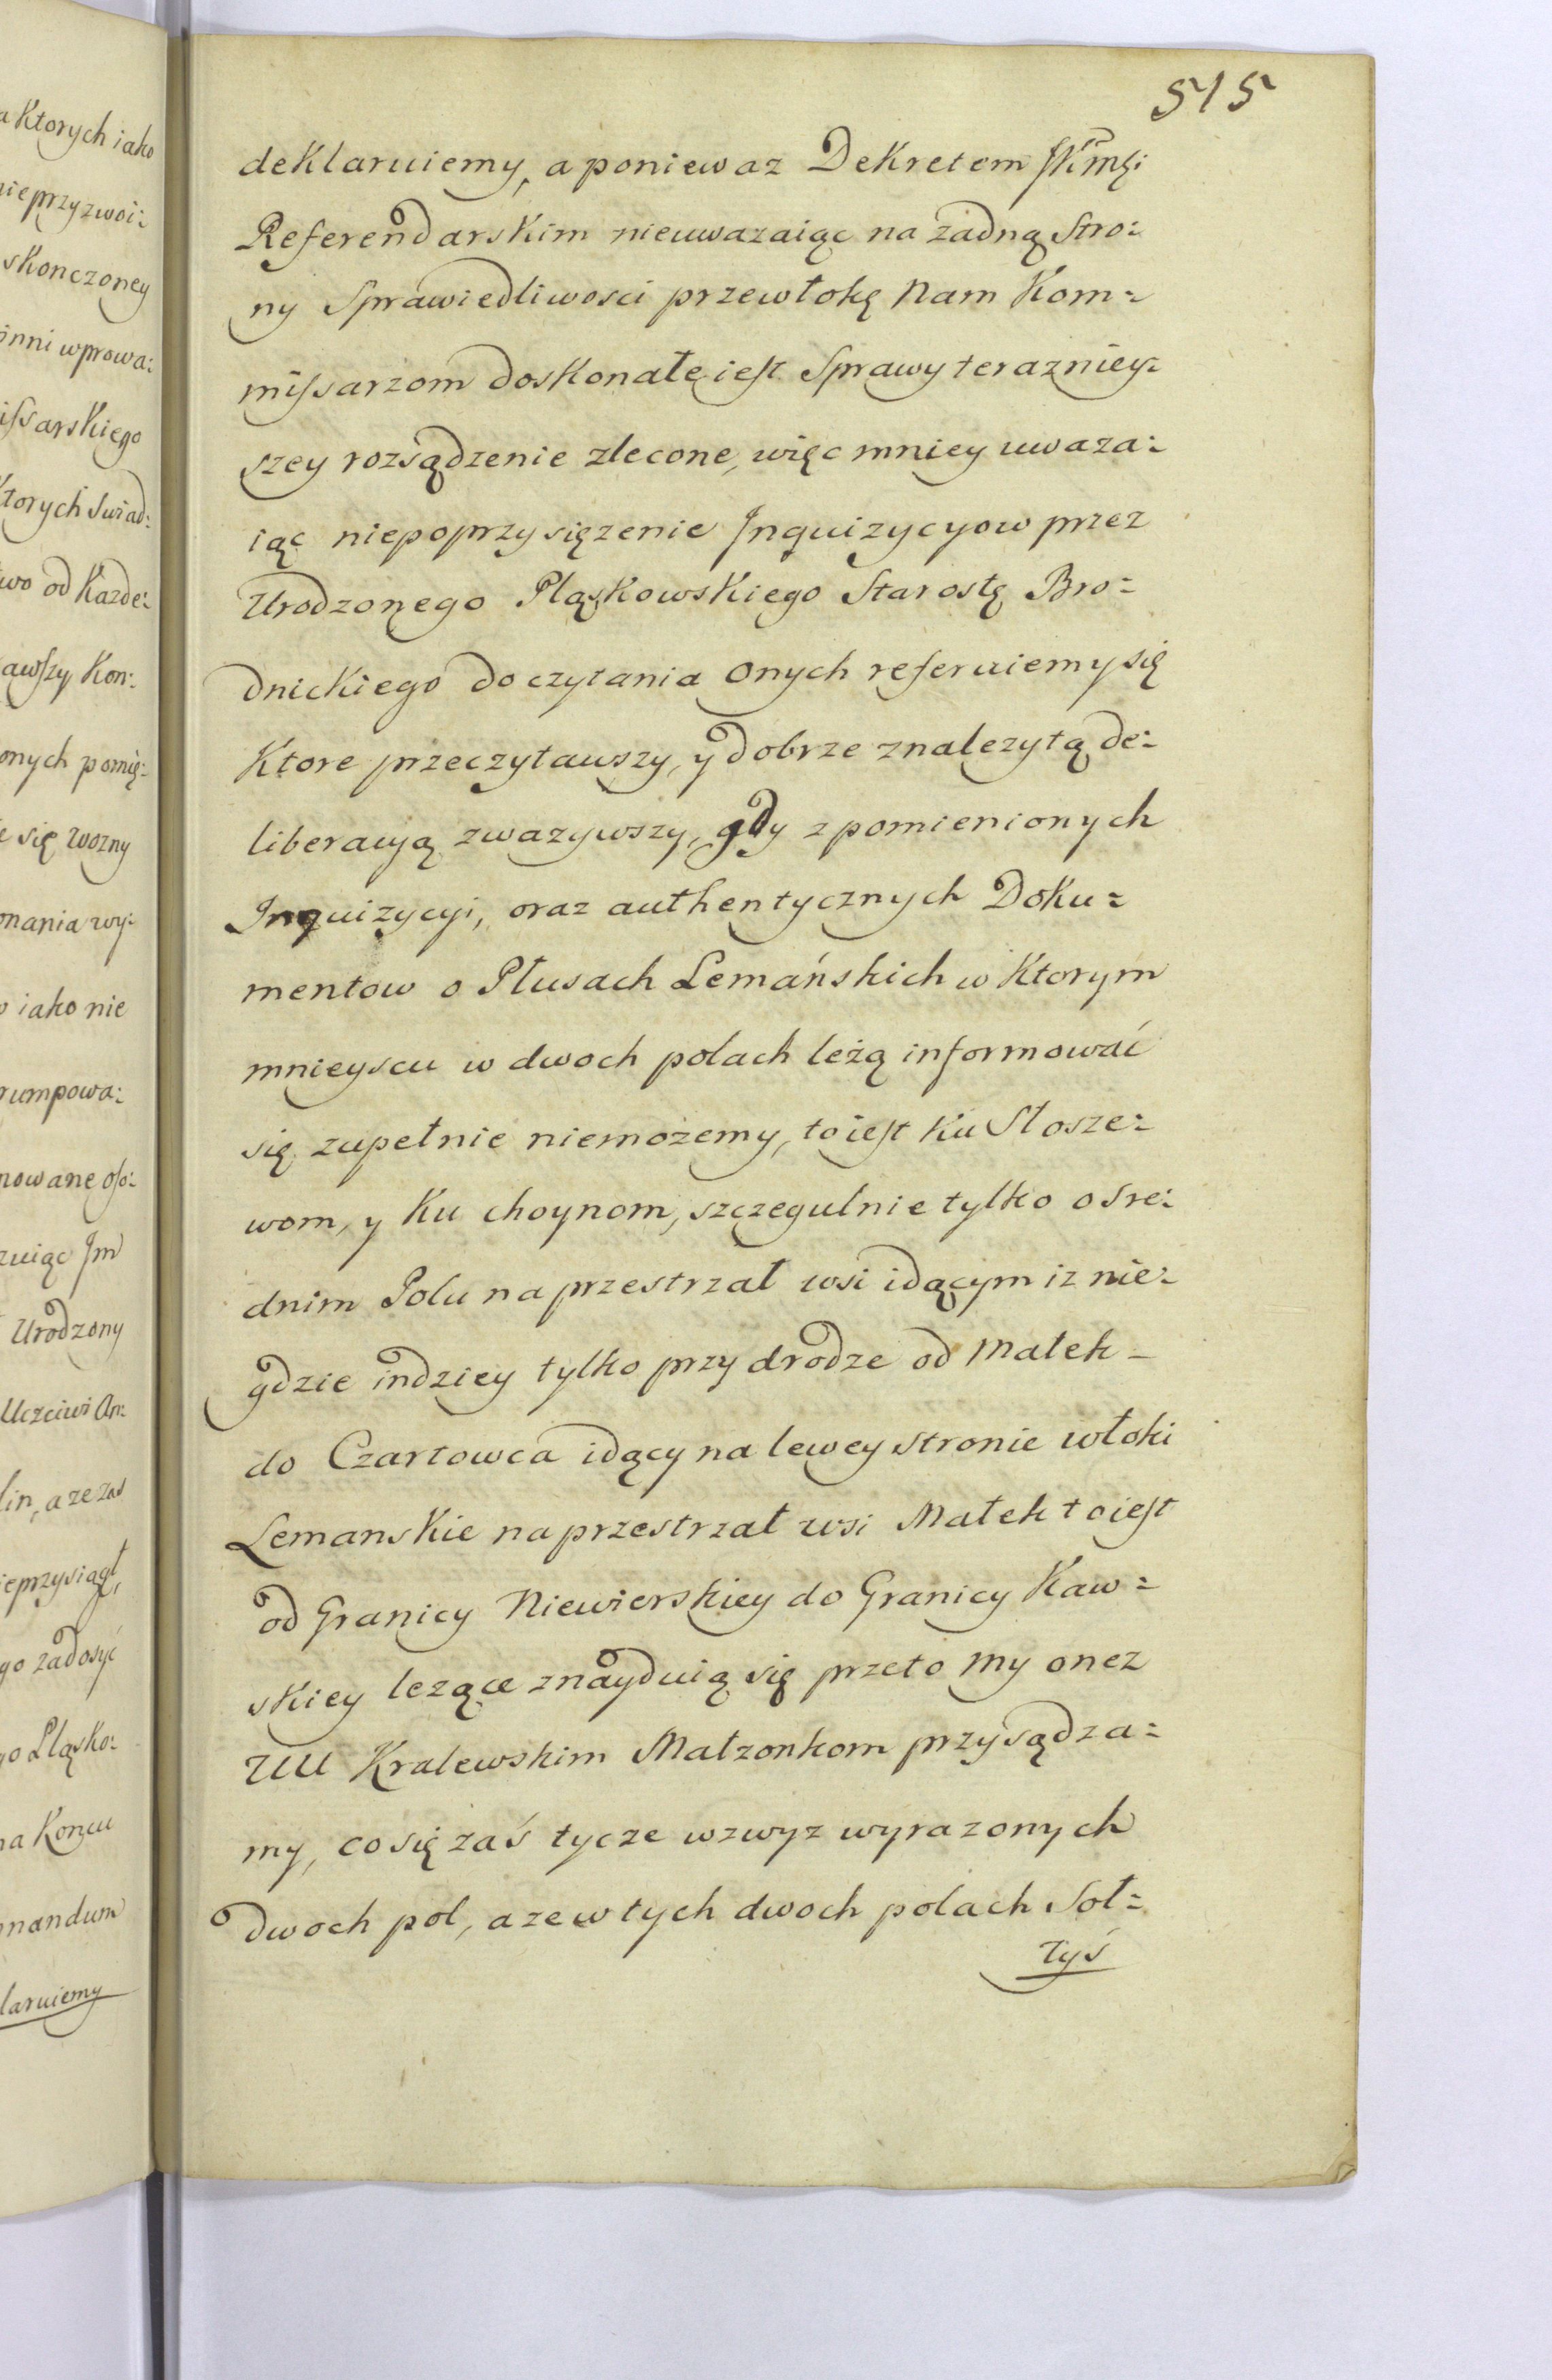 515
deklaruiemy, a poniewaz Dekretem JKMci
Referendarskim nieuwazaiąc na zadną Stro:
ny Sprawiedliwosci przewłokę Nam Kom=
missarzom doskonałe iest Sprawy terazniey=
szey rozsądzenie zlecone, więc mniey uwaza:
iąc niepoprzysięzenie Inquizycyow przez
Urodzonego Pląskowskiego Starostę Bro=
dnickiego do czytania onych referuiemy się
Ktore przeczytawszy, y dobrze znalezytą de:
liberacyą zwazywszy, gdy z pomienionych
Inquizycyi, oraz authentycznych Doku=
mentow o Płusach Lemańskich w Ktorym
mnieyscu w dwoch polach leżą informować
się zupełnie niemożemy, to iest Ku Słosze:
wom, y Ku choynom, szczegulnie tylko o sre:
dnim Polu na przestrzał wsi idącym iz nie:
gdzie indziey tylko przy drodze od Małek -
do Czartowca idący na lewey stronie włoki
Lemanskie na przestrzał wsi Małek to iest
od Granicy Niewierskiey do Granicy Kaw=
skiey lezące znayduią się przeto My onez
UU Kralewskim Małzonkom przysądza=
my, co się zaś tycze wzwyz wyrazonych
dwoch pol, a ze w tych dwoch polach Soł=
tyś
a Ktorych iako
nieprzyzwoi:
skonczoney
inni wprowa:
issarskiego
Ktorych Swiad:
two od Kazde:
awszy Kon:
onych pomię:
e się Wozny
onania wy:
o iako nie
rumpowa:
nowane oso:
zuiąc Im
Urodzony
Uczciwi An:
lin, a ze zas
ieprzysiągł,
go zadosyć
go Pląsko:
na Koncu
nandum
laruiemy